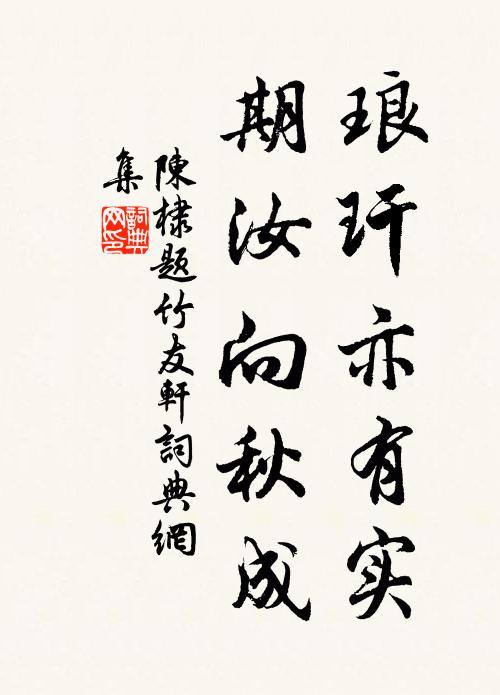 琅玕亦有实
期汝向秋成
陳棣题竹友軒詞典網
集
詞典
网印